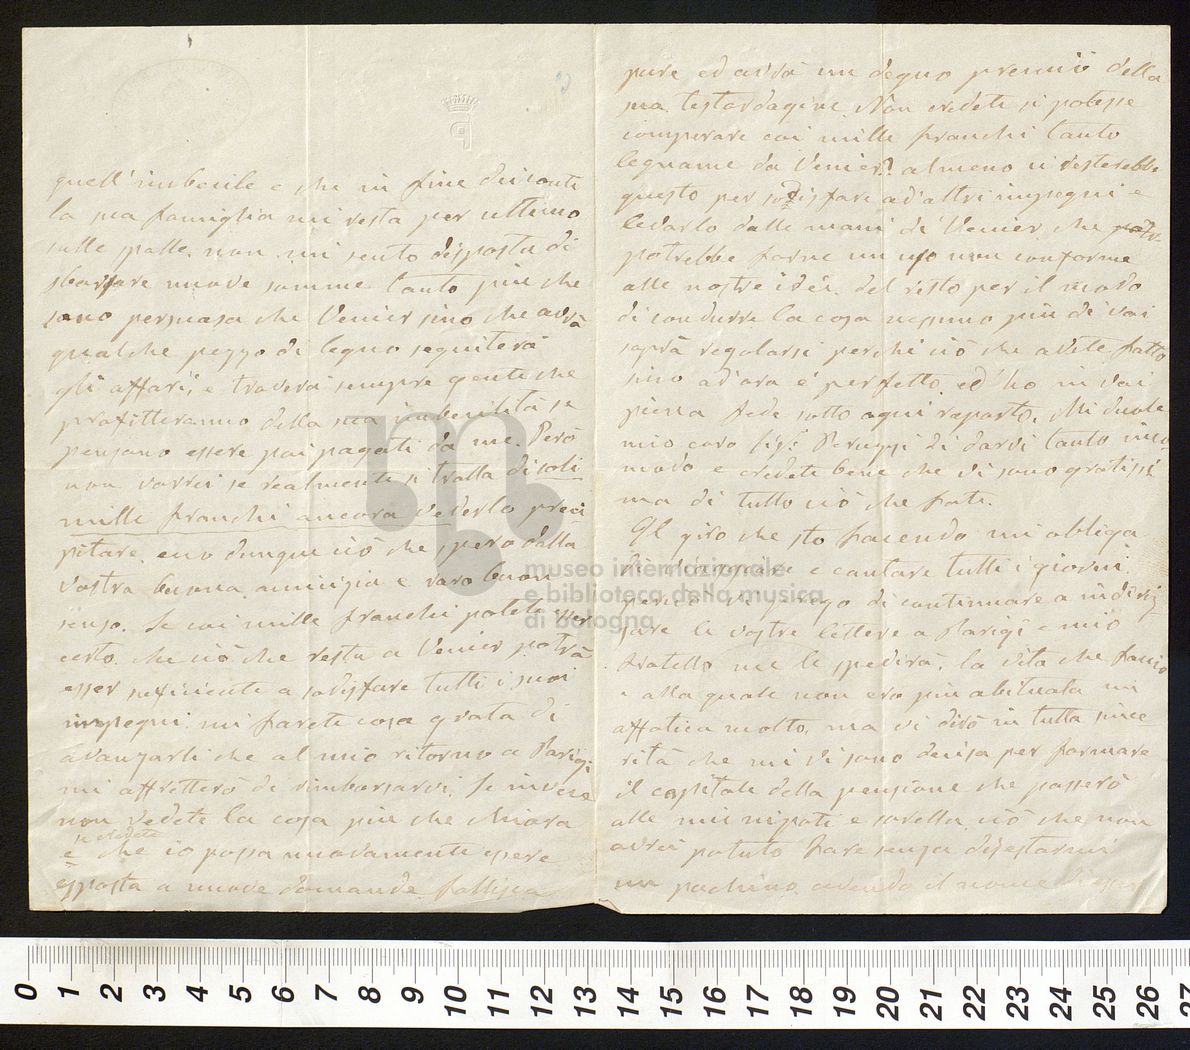 quell'imbecile e che in fine dei conti
la sua famiglia mi resta per ultimo
sulle spalle, non mi sento disposta di
sborsare nuove somme tanto più che
sono persuasa che Venier sino che avrà
qualche pezzo di legno seguiterà
gli affari, e troverà sempre gente che
profitteranno della sua imbecilità se
pensano essere poi pagati da me. Però
non vorrei se realmente si tratta di soli
mille franchi ancora vederlo preci
pitare, ecco dunque ciò che spero dalla
vostra buona amicizia e raro buon
senso. Se coi mille franchi potete esser
certo che ciò che resta a Venier potrà
esser suficiente a sodisfare tutti i suoi
impegni mi farete cosa grata di
avanzarli che al mio ritorno a Parigi
mi affretterò di rimborsarvi. Se invece
non vedete la cosa più che chiara
se credete
e che io possa nuovamente essere
esposta a nuove domande fallisca
pure ed avrà un degno premio della
sua testardagine. Non credete si potesse
comperare coi mille franchi tanto
legname da Venier? almeno ci resterebbe
questo per sodisfare ad altri impegni e
levarlo dalle mani di Venier che
potrebbe farne un uso non conforme
alle nostre idee. del resto per il modo
di condurre la cosa nessuno più di voi
saprà regolarsi perchè ciò che avete fatto
sino ad'ora è perfetto, ed'ho in voi
piena fede sotto ogni raporto. Mi duole
mio caro Sig.r Peruzzi di darvi tanto inco
modo e credete bene che vi sono gratissi
ma di tutto ciò che fate.
Il giro che sto facendo mi obliga
di viaggiare e cantare tutti i giorni
perciò vi prego di continuare a indiriz
zare le vostre lettere a Parigi e mio
fratello me le spedirà, la vita che facio
e alla quale non ero più abituata mi
affatica molto, ma vi dirò in tutta since
rità che mi vi sono decisa per formare
il capitale della pensione che passerò
alle mie nipoti e sorella, ciò che non
avrei potuto fare senza disestarmi
un pochino, avendo il nome
museo internazionale
e biblioteca della musica
di bologna
0 1 2 3 4 5 6 7 8 9 10 11 12 13 14 15 16 17 18 19 20 21 22 23 24 25 26 27